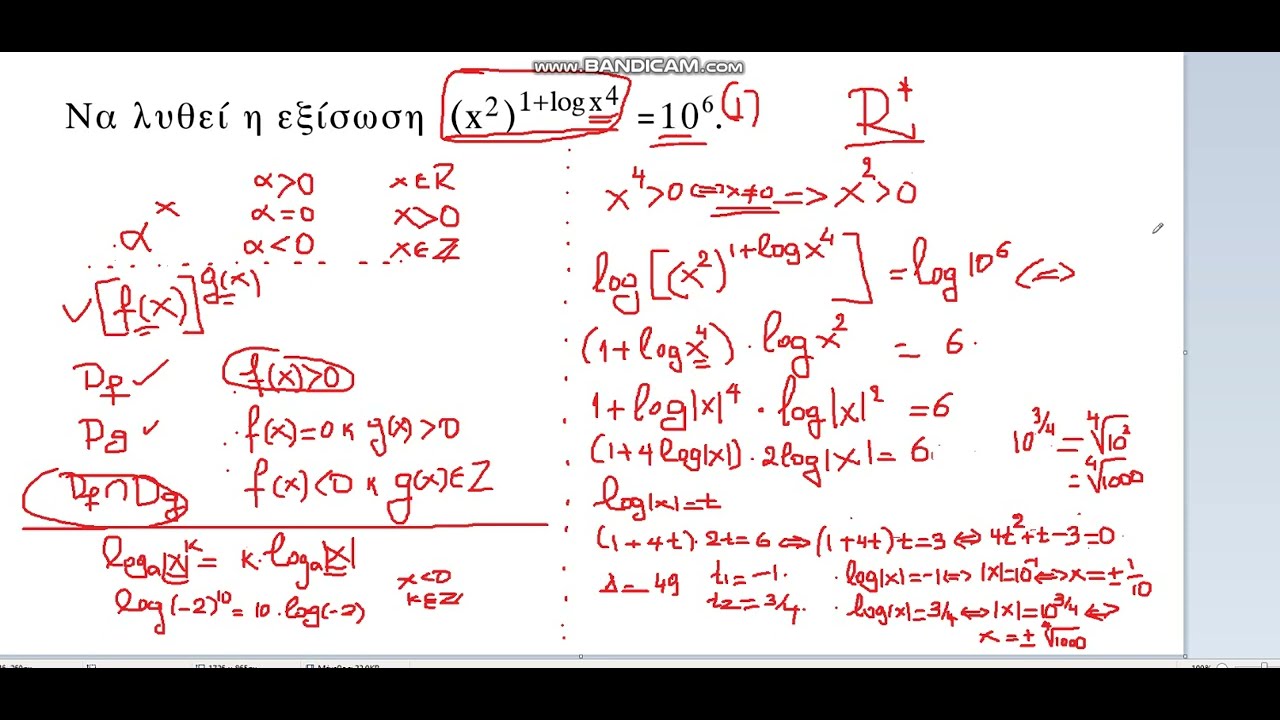 www.BANDICAM.com
Να λυθεί η εξίσωση (x²)^(1+log x⁴) = 10⁶. (1) R*
α^x
α>0 x∈R
α=0 x>0
α<0 x∈Z
✓[f(x)]^g(x)
D_f ✓ f(x)>0
D_g ✓ f(x)=0 κ g(x)>0
D_f∩D_g f(x)<0 κ g(x)∈Z
log_a|x|^κ = κ·log_a|x|
log(-2)^10 = 10·log(-2)
x<0
κ∈Z
x⁴>0 ⇔ x≠0 ⇒ x²>0
log[(x²)^(1+log x⁴)] = log10⁶ ⇔
(1+log x⁴)·log x² = 6.
1+log|x|⁴·log|x|² = 6
(1+4log|x|)·2log|x| = 6
10^(3/4) = ⁴√10³
= ⁴√1000
log|x| = t
(1+4t)·2t=6 ⇔ (1+4t)t=3 ⇔ 4t²+t-3=0
Δ=49 t₁=-1. ·log|x|=-1 ⇔ |x|=10⁻¹ ⇔ x=±1/10
t₂=3/4. ·log|x|=3/4 ⇔ |x|=10^(3/4) ⇔
x=±⁴√1000